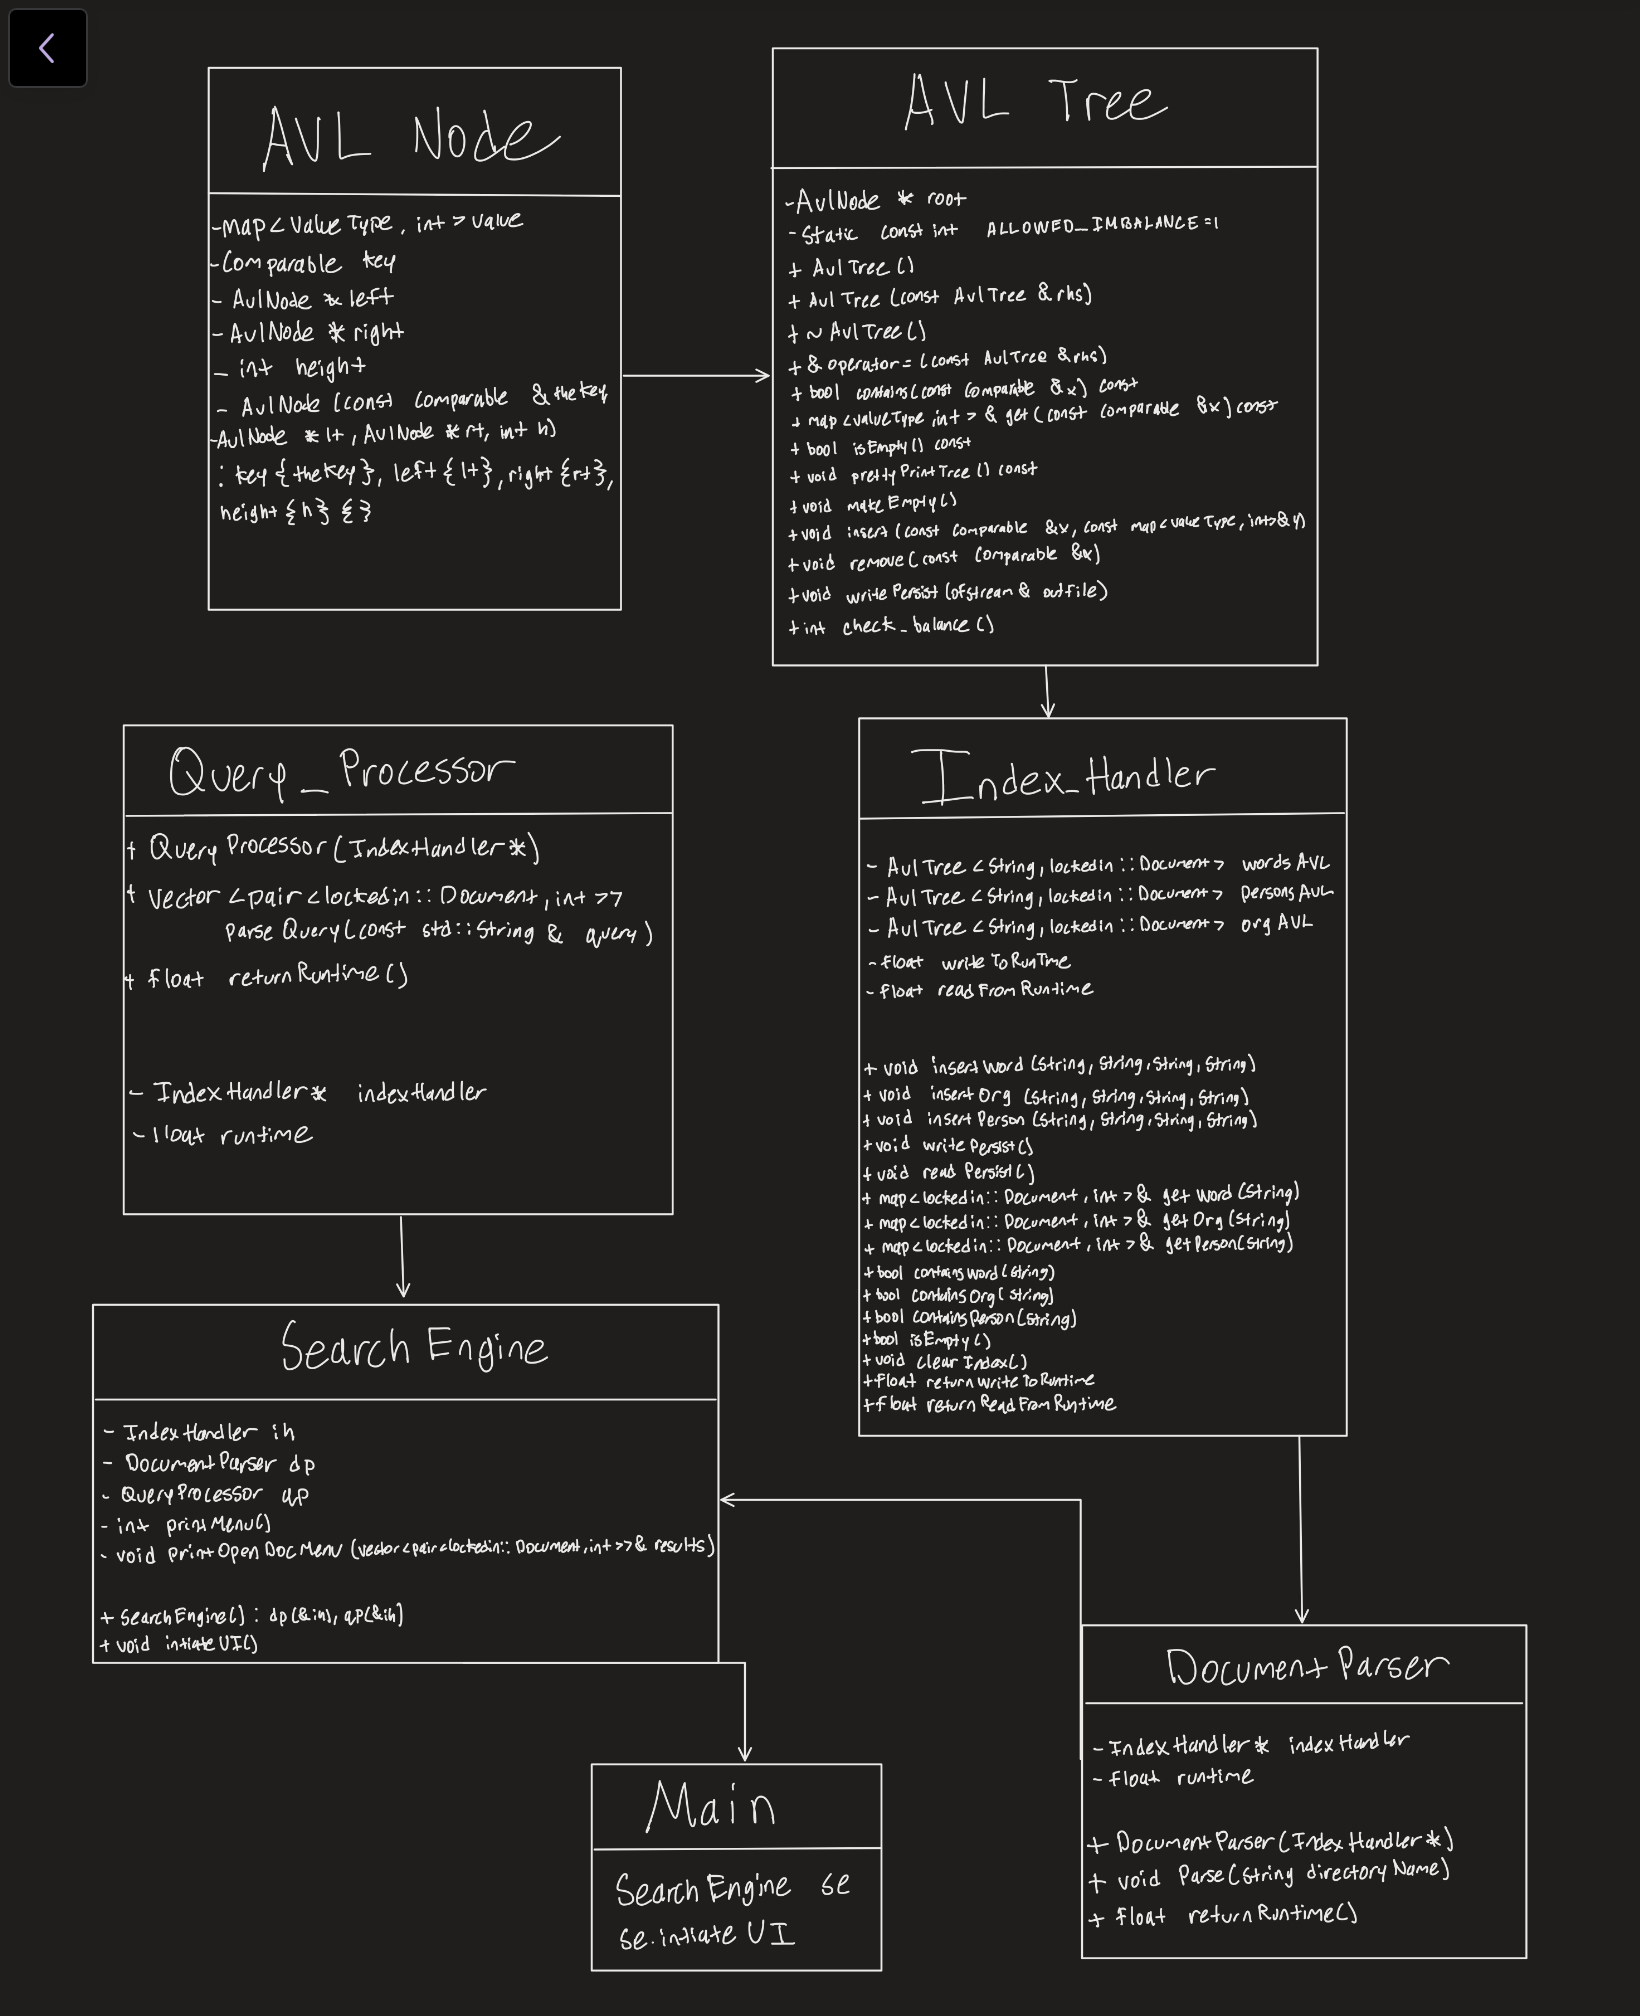 AVL Node
-map<ValueType, int> value
-Comparable key
- AvlNode * left
- AvlNode * right
- int height
- AvlNode (const Comparable & theKey
-AvlNode * lt, AvlNode * rt, int h)
: key {theKey}, left {lt}, right {rt},
height {h} {}
AVL Tree
-AvlNode * root
- Static const int ALLOWED_IMBALANCE=1
+ AvlTree()
+ AvlTree (const AvlTree &rhs)
+ ~ AvlTree()
+ & operator= (const AvlTree &rhs)
+ bool contains(const Comparable &x) const
+ map <valueType, int> & get (const Comparable &x) const
+ bool isEmpty() const
+ void prettyPrintTree() const
+ void makeEmpty()
+ void insert (const Comparable &x, const map<valueType, int>&y)
+ void remove(const Comparable &x)
+ void writePersist(ofstream & outfile)
+ int check_balance()
Query_Processor
+ QueryProcessor(IndexHandler*)
+ Vector <pair<lockedin::Document, int>>
parseQuery(const std::String & query)
+ float returnRuntime()
- IndexHandler* indexHandler
- float runtime
Index_Handler
- AvlTree <String, lockedin::Document> wordsAVL
- AvlTree <String, lockedin::Document> personsAVL
- AvlTree <String, lockedin::Document> orgAVL
- float writeToRunTme
- float readFromRuntime
+ void insertWord (String, String, String, String)
+ void insertOrg (String, String, String, String)
+ void insertPerson (String, String, String, String)
+ void writePersist()
+ void readPersist()
+ map<lockedin::Document, int>& getWord(String)
+ map<lockedin::Document, int>& getOrg(String)
+ map<lockedin::Document, int>& getPerson(String)
+ bool containsWord(String)
+ bool containsOrg(String)
+ bool containsPerson(String)
+ bool isEmpty()
+ void clearIndex()
+ float returnWriteToRuntime
+ float returnReadFromRuntime
Search Engine
- IndexHandler ih
- DocumentParser dp
- QueryProcessor qp
- int printMenu()
- void printOpenDocMenu (vector<pair<lockedin::Document, int>>& results)
+ SearchEngine() : dp(&ih), qp(&ih)
+ void intiateUI()
DocumentParser
- IndexHandler* indexHandler
- float runtime
+ DocumentParser(IndexHandler*)
+ void Parse(String directoryName)
+ float returnRuntime()
Main
SearchEngine se
se.intiateUI